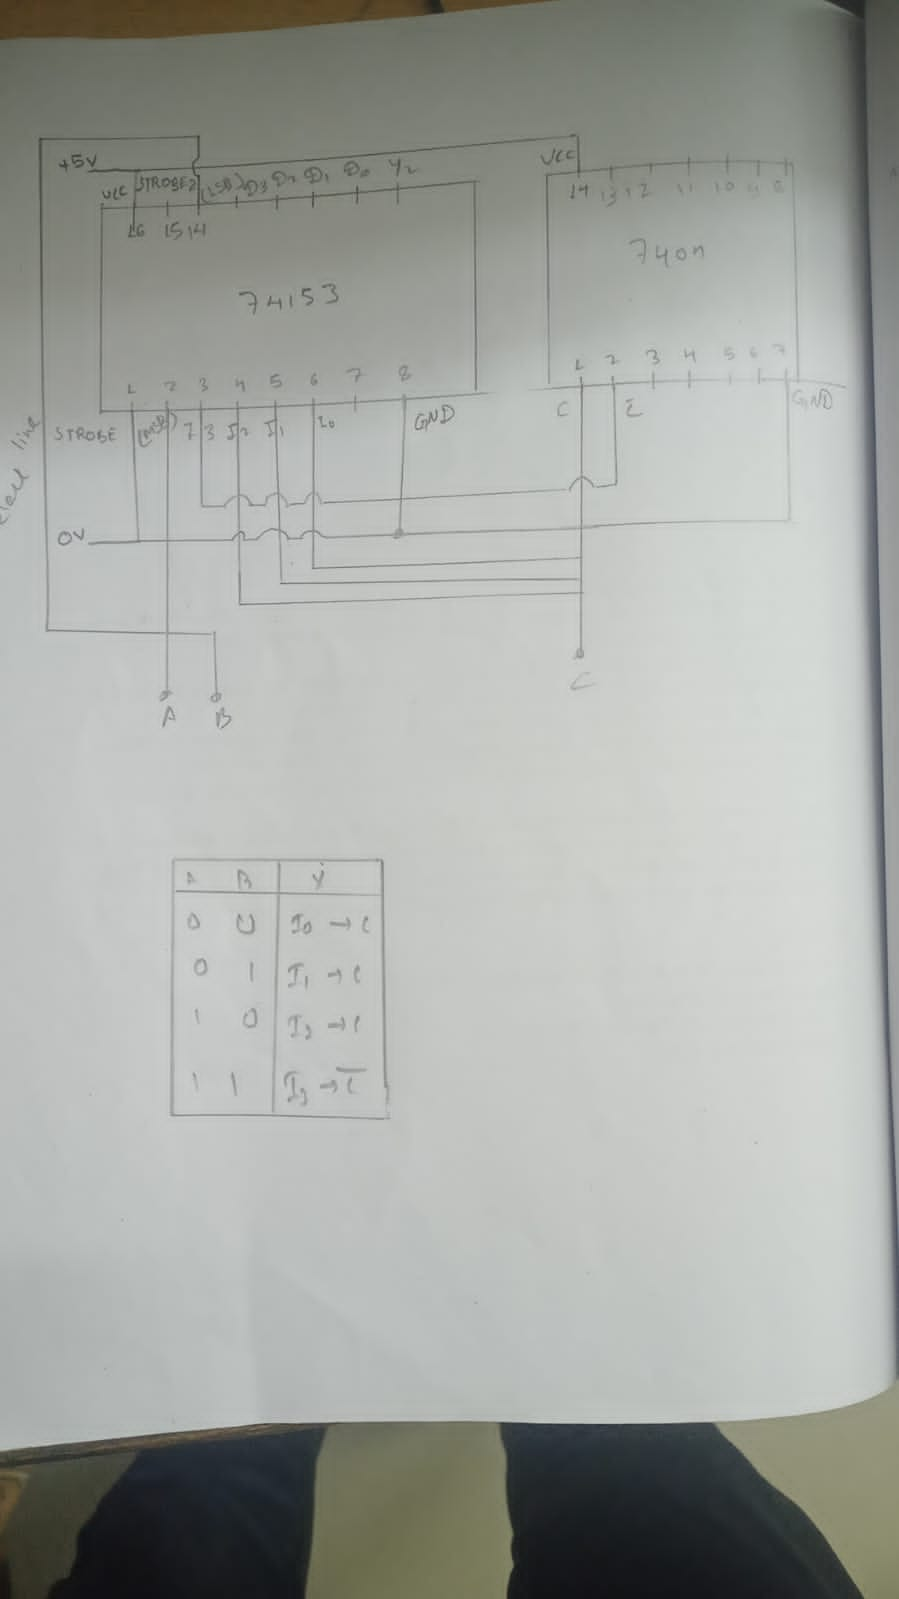 +5V
VCC STROBE2 (LSB) D3 D2 D1 D0 Y2
16 15 14
74153
1 2 3 4 5 6 7 8
STROBE (MSB) I3 I2 I1 I0 GND
line
0V
A B
VCC
14 13 12 11 10 9 8
1 2 3 4 5 6 7
C C̅ GND
C
A B Y
0 0 I0 → C
0 1 I1 → C
1 0 I2 → C
1 1 I3 → C̅